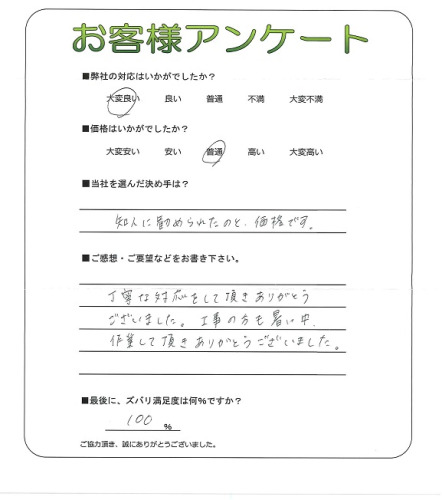 お客様アンケート
■弊社の対応はいかがでしたか？
大変良い 良い 普通 不満 大変不満
■価格はいかがでしたか？
大変安い 安い 普通 高い 大変高い
■当社を選んだ決め手は？
知人に勧められたのと、価格です。
■ご感想・ご要望などをお書き下さい。
丁寧な対応をして頂きありがとう
ございました。工事の方も暑い中、
作業して頂きありがとうございました。
■最後に、ズバリ満足度は何%ですか？
100 %
ご協力頂き、誠にありがとうございました。